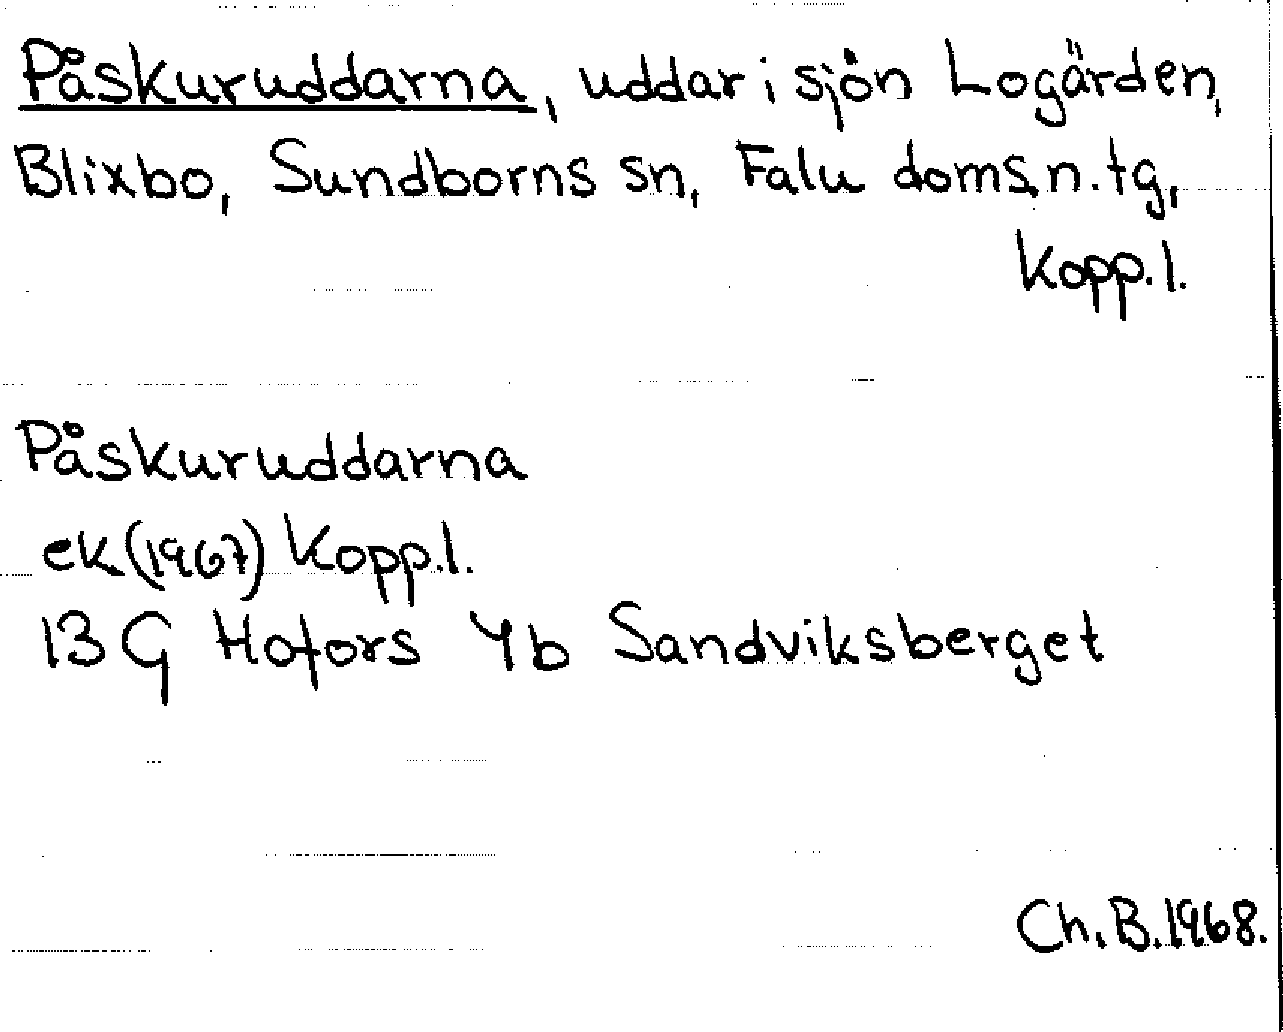 Påskuruddarna, uddar i sjön Logärden,
Blixbo, Sundborns sn, Falu doms.n.tg,
Kopp.l.
Påskuruddarna
ek (1967) Kopp.l.
13 G Hofors 4b Sandviksberget
Ch.B.1968.